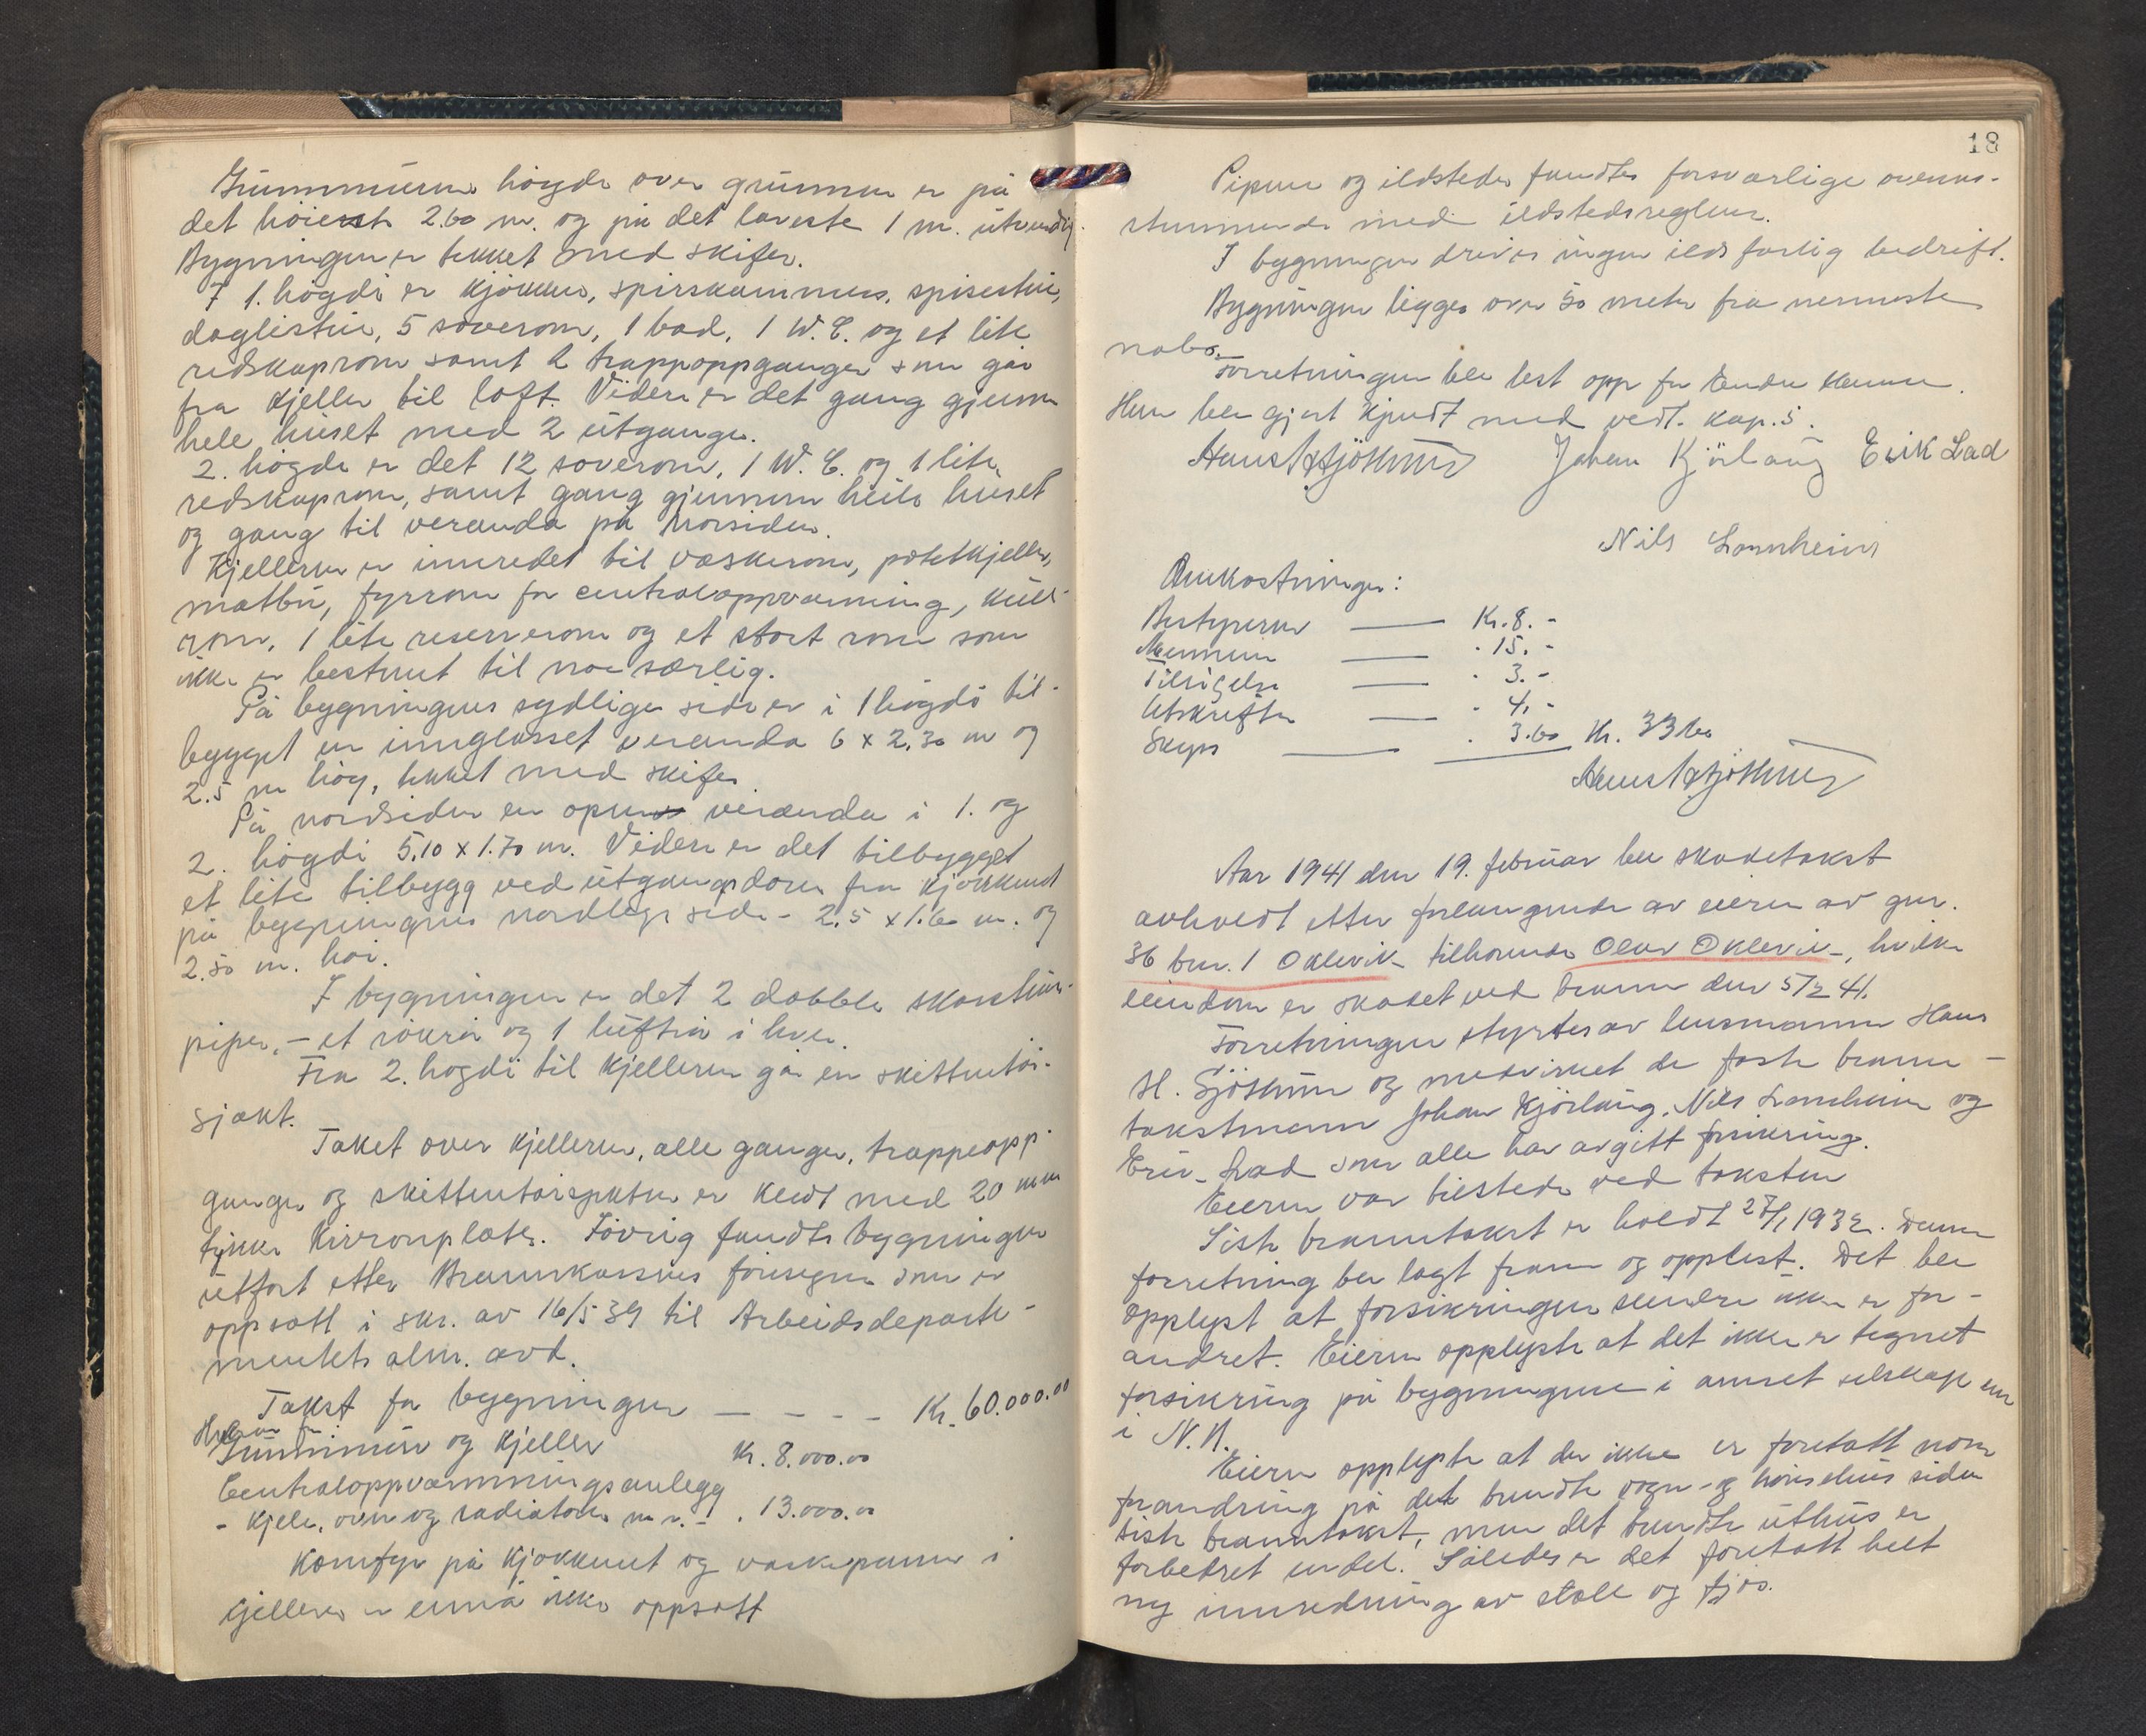 Grunnmurens høgde over grunnen er på
det høieste 2.60 m. og på det laveste 1 m. utvendig.
Bygningen er tekket med skifer.
I 1. høgdi er kjøkken, spiskammers, spisestue,
daglistue, 5 soverom, 1 bad, 1 W.C. og et lite
redskaprom samt 2 trappoppganger som går
fra kjeller til loft. Videre er det gang gjennom
hele huset med 2 utganger.
2. høgde er det 12 soverom, 1 W.C. og 1 lite
redskaprom, samt gang gjennem heile huset
og gang til veranda på norsiden.
Kjelleren er innredet til vaskerom, potetkjeller,
matbu, fyrrom for centraloppvarming, kull-
rom, 1 lite reserverom og et stort rom som
ikke er bestemt til noe særlig.
På bygningens sydlige side er i 1 høgdi til-
bygget en innglasset veranda 6 x 2.30 m og
2.5 m høy, tekket med skifer
På nordsiden en open veranda i 1. og
2. høgdi 5.10 x 1.70 m. Videre er det tilbygget
et lite tilbygg ved utgangsdøren fra kjøkkenet
på bygningens nordlige side - 2.5 x 1.60 m. og
2.50 m. høi.
I bygningen er det 2 dobble skorsteins-
piper, - et røkrør og 1 luftrør i hver.
Fra 2. høgdi til kjelleren går en skittentøi-
sjakt.
Taket over kjelleren, alle ganger, trappeopp-
ganger og skittentøisjakten er kledt med 20 mm
tykke plater. Iøvrig fandtes bygningen
utført etter Brannkassens foresegn som er
oppsatt i skr. av 16/5 39 til Arbeidsdeparte-
mentets alm. avd.
Takst for bygningen - - - - Kr. 60.000.00
Herav for
Grunnmur og kjeller Kr. 8.000.00
Centraloppvarmningsanlegg
- kjele, ovn og radiatorer m.v. - . 13.000.00
Komfyr på kjøkkenet og vaskepanne i
kjelleren er ennå ikke oppsatt
18
Pipene og ildsteder fandtes forsvarlige overens-
stemmende med ildstedsreglene.
I bygningen drives ingen ildsfarlig bedrift.
Bygningen ligger over 50 meter fra nermeste
nabo.
Forretningen ble lest opp for
Han ble gjort kjendt med vedt. kap. 5.
Hans H Sjøthun Johan Kjørlaug Erik Lad
Nils Lonnheim
Omkostninger:
Bestyreren — Kr. 8. -
Mennene — . 15. -
Tilsigelse — . 3. -
Utskrifter — . 4. -
Skyss — . 3.60 Kr. 33 60
Hans H Sjøthun
Aar 1941 den 19. februar ble skadetakst
avholdt etter forlangende av eieren av gnr.
36 bnr. 1 Oklevik tilhørende Olav Oklevik, hvilken
eiendom er skadet ved brann den 5/2 41.
Forretningen styrtes av lensmannen Hans
H. Sjøthun og medvirket de faste brann-
takstmenn Johan Kjørlaug, Nils Lonnheim og
Erik Lad som alle har avgitt forsikring.
Eieren var tilstede ved taksten
Siste branntakst er holdt 27/1 1932. Denne
forretning ble lagt fram og opplest. Det ble
opplyst at forsikringen seinere ikke er for-
andret. Eieren opplyste at det ikke er tegnet
forsikring på bygningene i annet selskap enn
i N. B.
Eieren opplyste at der ikke er foretatt noen
forandring på det brendte vogn- og hønsehus siden
siste branntakst, men det brendte uthus er
forbedret endel. Således er det foretatt helt
ny innredning av stall og fjøs.